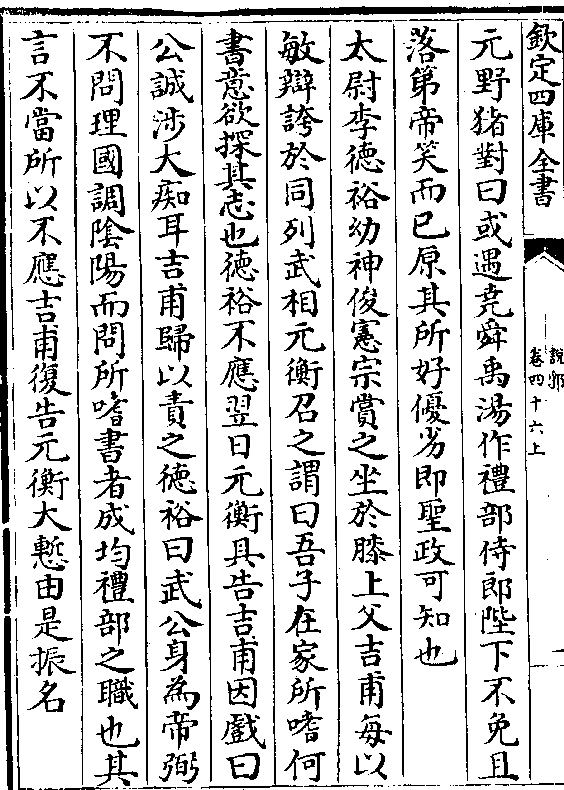 欽定四庫全書
說郛
卷四十六上
元野猪對曰或遇堯舜禹湯作禮部侍郎陛下不免且
落第帝笑而已原其所好優劣即聖政可知也
太尉李德裕幼神俊憲宗賞之坐於膝上父吉甫每以
敏辯誇於同列武相元衡召之謂曰吾子在家所嗜何
書意欲探其志也德裕不應翌日元衡具告吉甫因戲曰
公誠涉大痴耳吉甫歸以責之德裕曰武公身為帝弼
不問理國調陰陽而問所嗜書者成均禮部之職也其
言不當所以不應吉甫復告元衡大慙由是振名